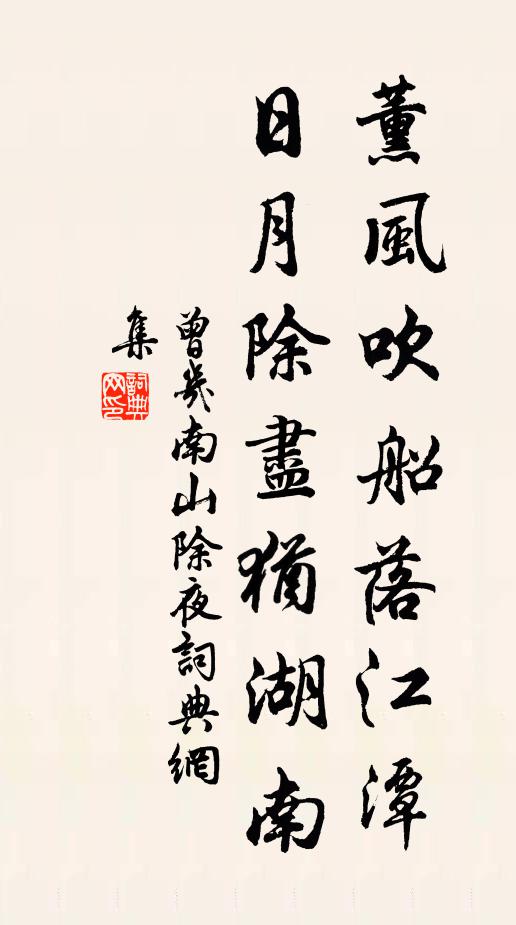 薰風吹船落江潭
日月除盡猶湖南
曾幾南山除夜詞典網
集
詞典
网印